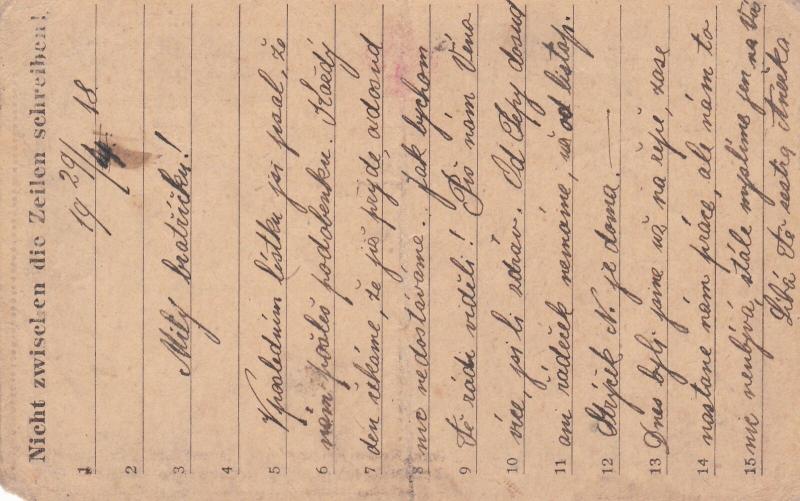 Nicht zwischen die Zeilen schreiben!
1 19 29/4 18.
2
3 Milý bratříčku!
4
5 V posledním lístku jsi psal, že
6 nám pošleš podobenku. Každý
7 den čekáme, že již přijde a dosud
8 nic nedostáváme. Jak bychom
9 Tě rádi viděli! Piš nám Véno
10 více, jsi li zdráv. Od Pepy dosud
11 ani řádeček nemáme, už od listop.
12 Strýček N. je doma. —
13 Dnes byli jsme už na řepě, zase
14 nastane nám práce, ale nám to
15 nic neubývá, stále myslíme jen na Vás
Líbá Tě sestra Anežka